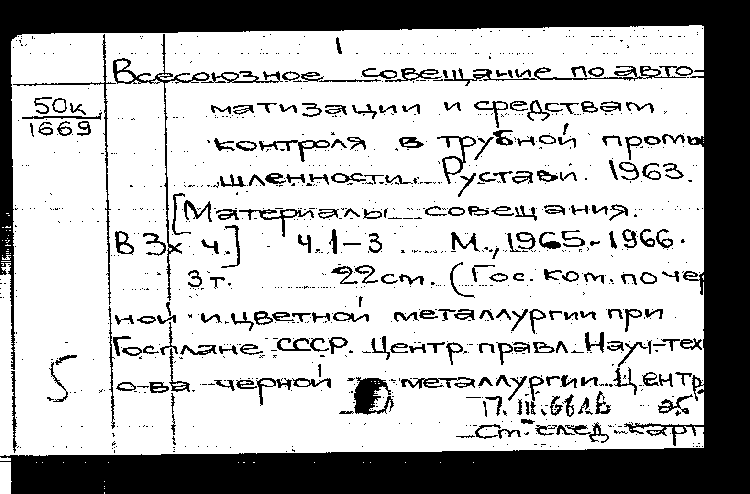 1
Всесоюзное совещание по авто-
50к
1669
матизации и средствам
контроля в трубной промы
шленности. Рустави. 1963.
[Материалы совещания.
В 3х ч.] Ч. 1-3 М., 1965-1966.
3 т. 22 ст. (Гос. ком. по чер
ной и цветной металлургии при
Госплане СССР. Центр. правл. Науч-тех
о-ва черной металлургии. Центр
5
17.III.66
Ст. след. карт